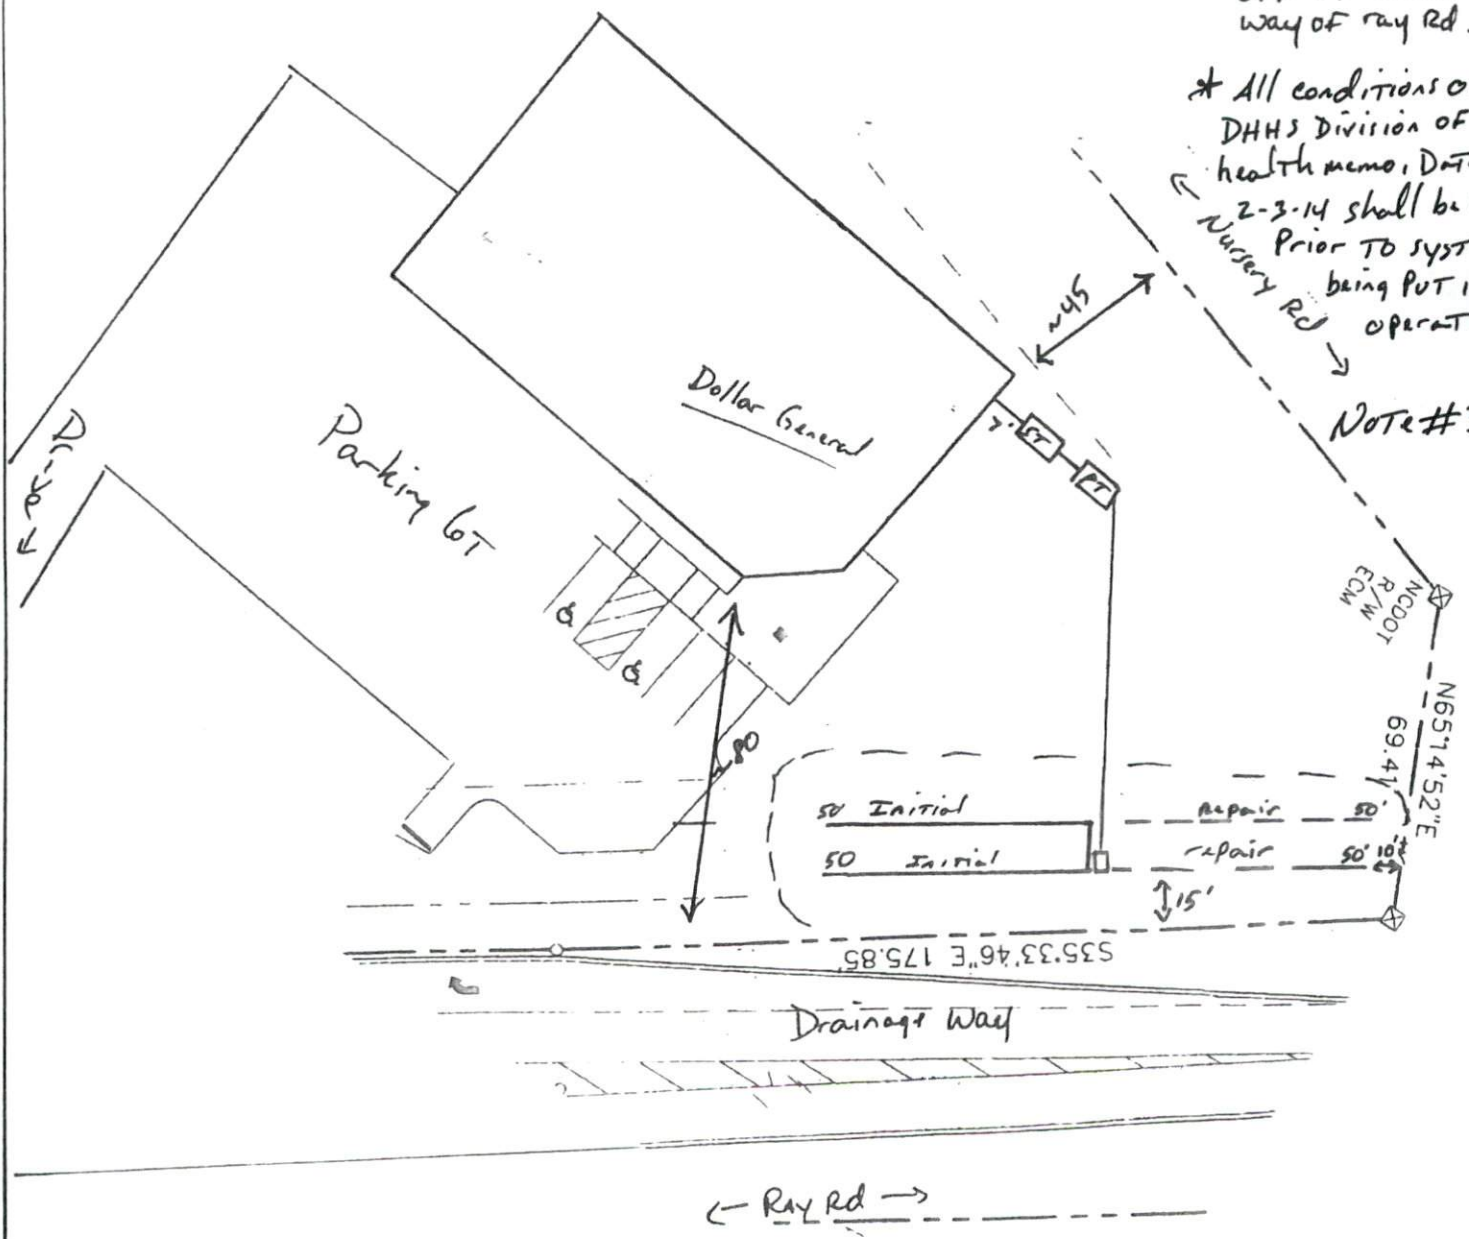 way of ray Rd.
* All conditions o
DHHS Division OF
health memo, Dat
2-3-14 shall be
Prior To syst
being PUT i
operat
← Nursery Rd →
~45
Note #
Dollar General
7'
ST
PT
Parking LoT
Drive
←
NCDOT
R/W
ECM
N65°14'52"E
69.41'
80
50' Initial
repair 50'
50 Initial
repair 50' 10'±
15'
S35°33'46"E 175.85'
Drainage Way
← Ray Rd →